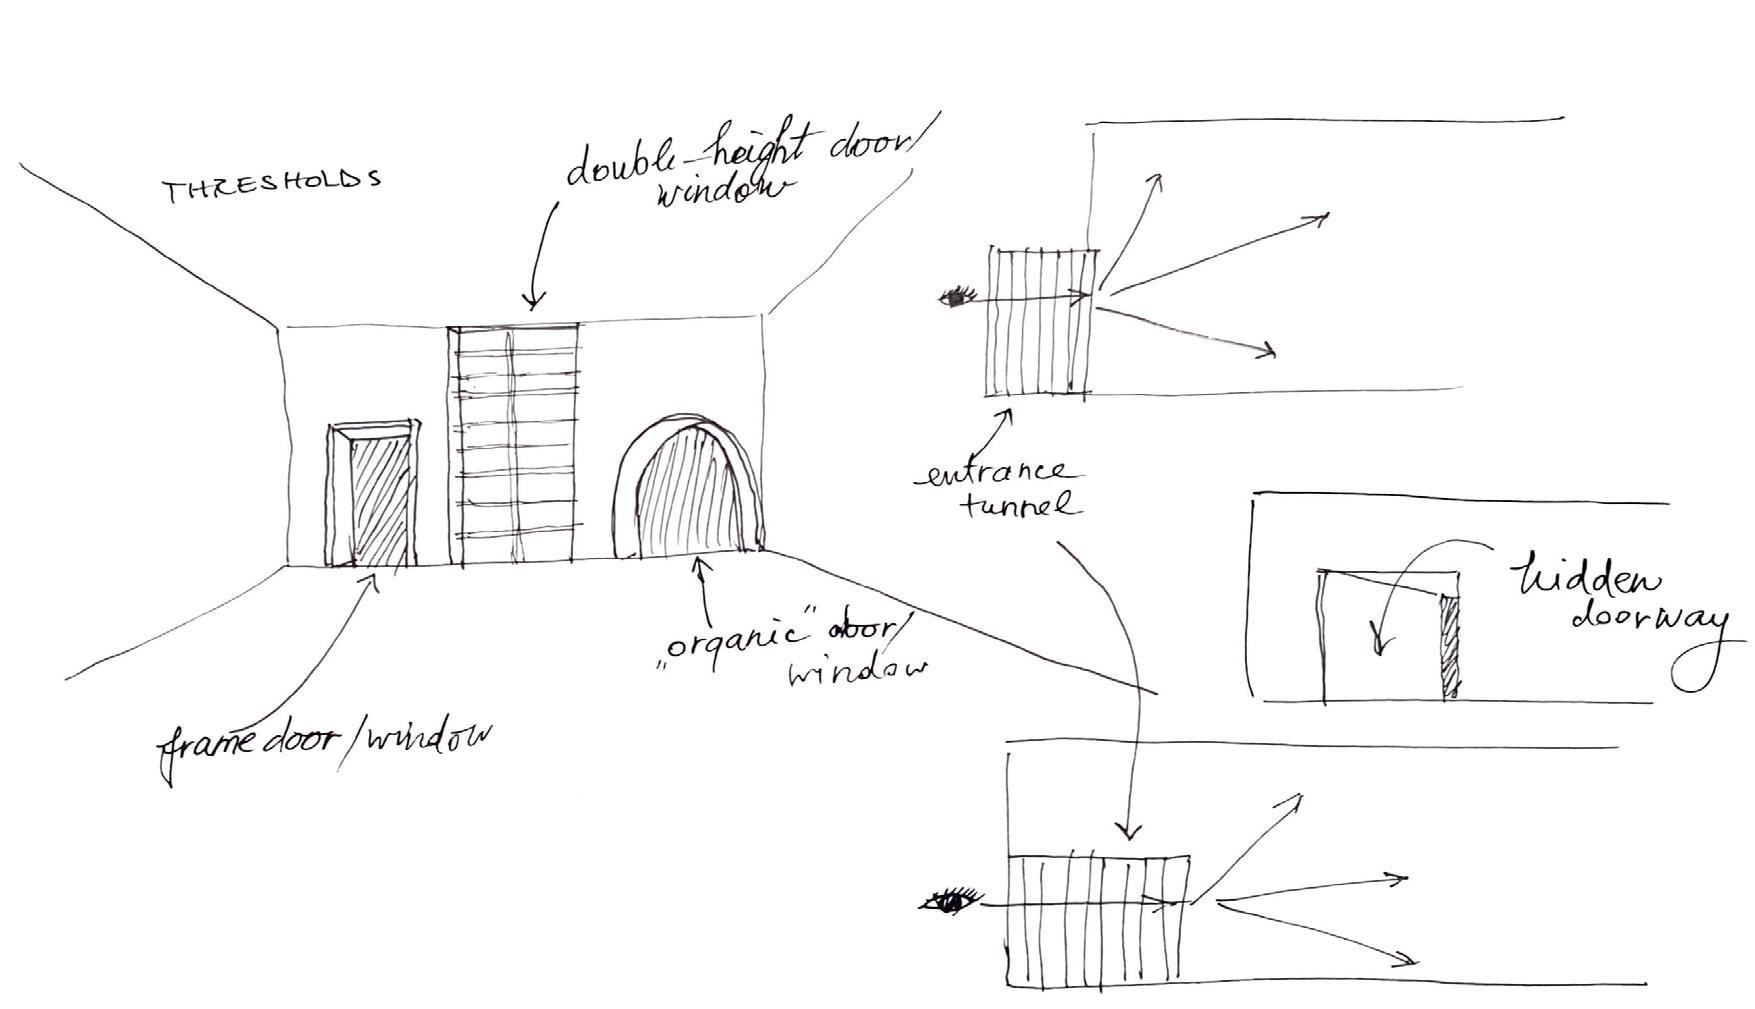 THRESHOLDS
double-height door/
window
frame door/window
„organic" door/
window
entrance
tunnel
hidden
doorway